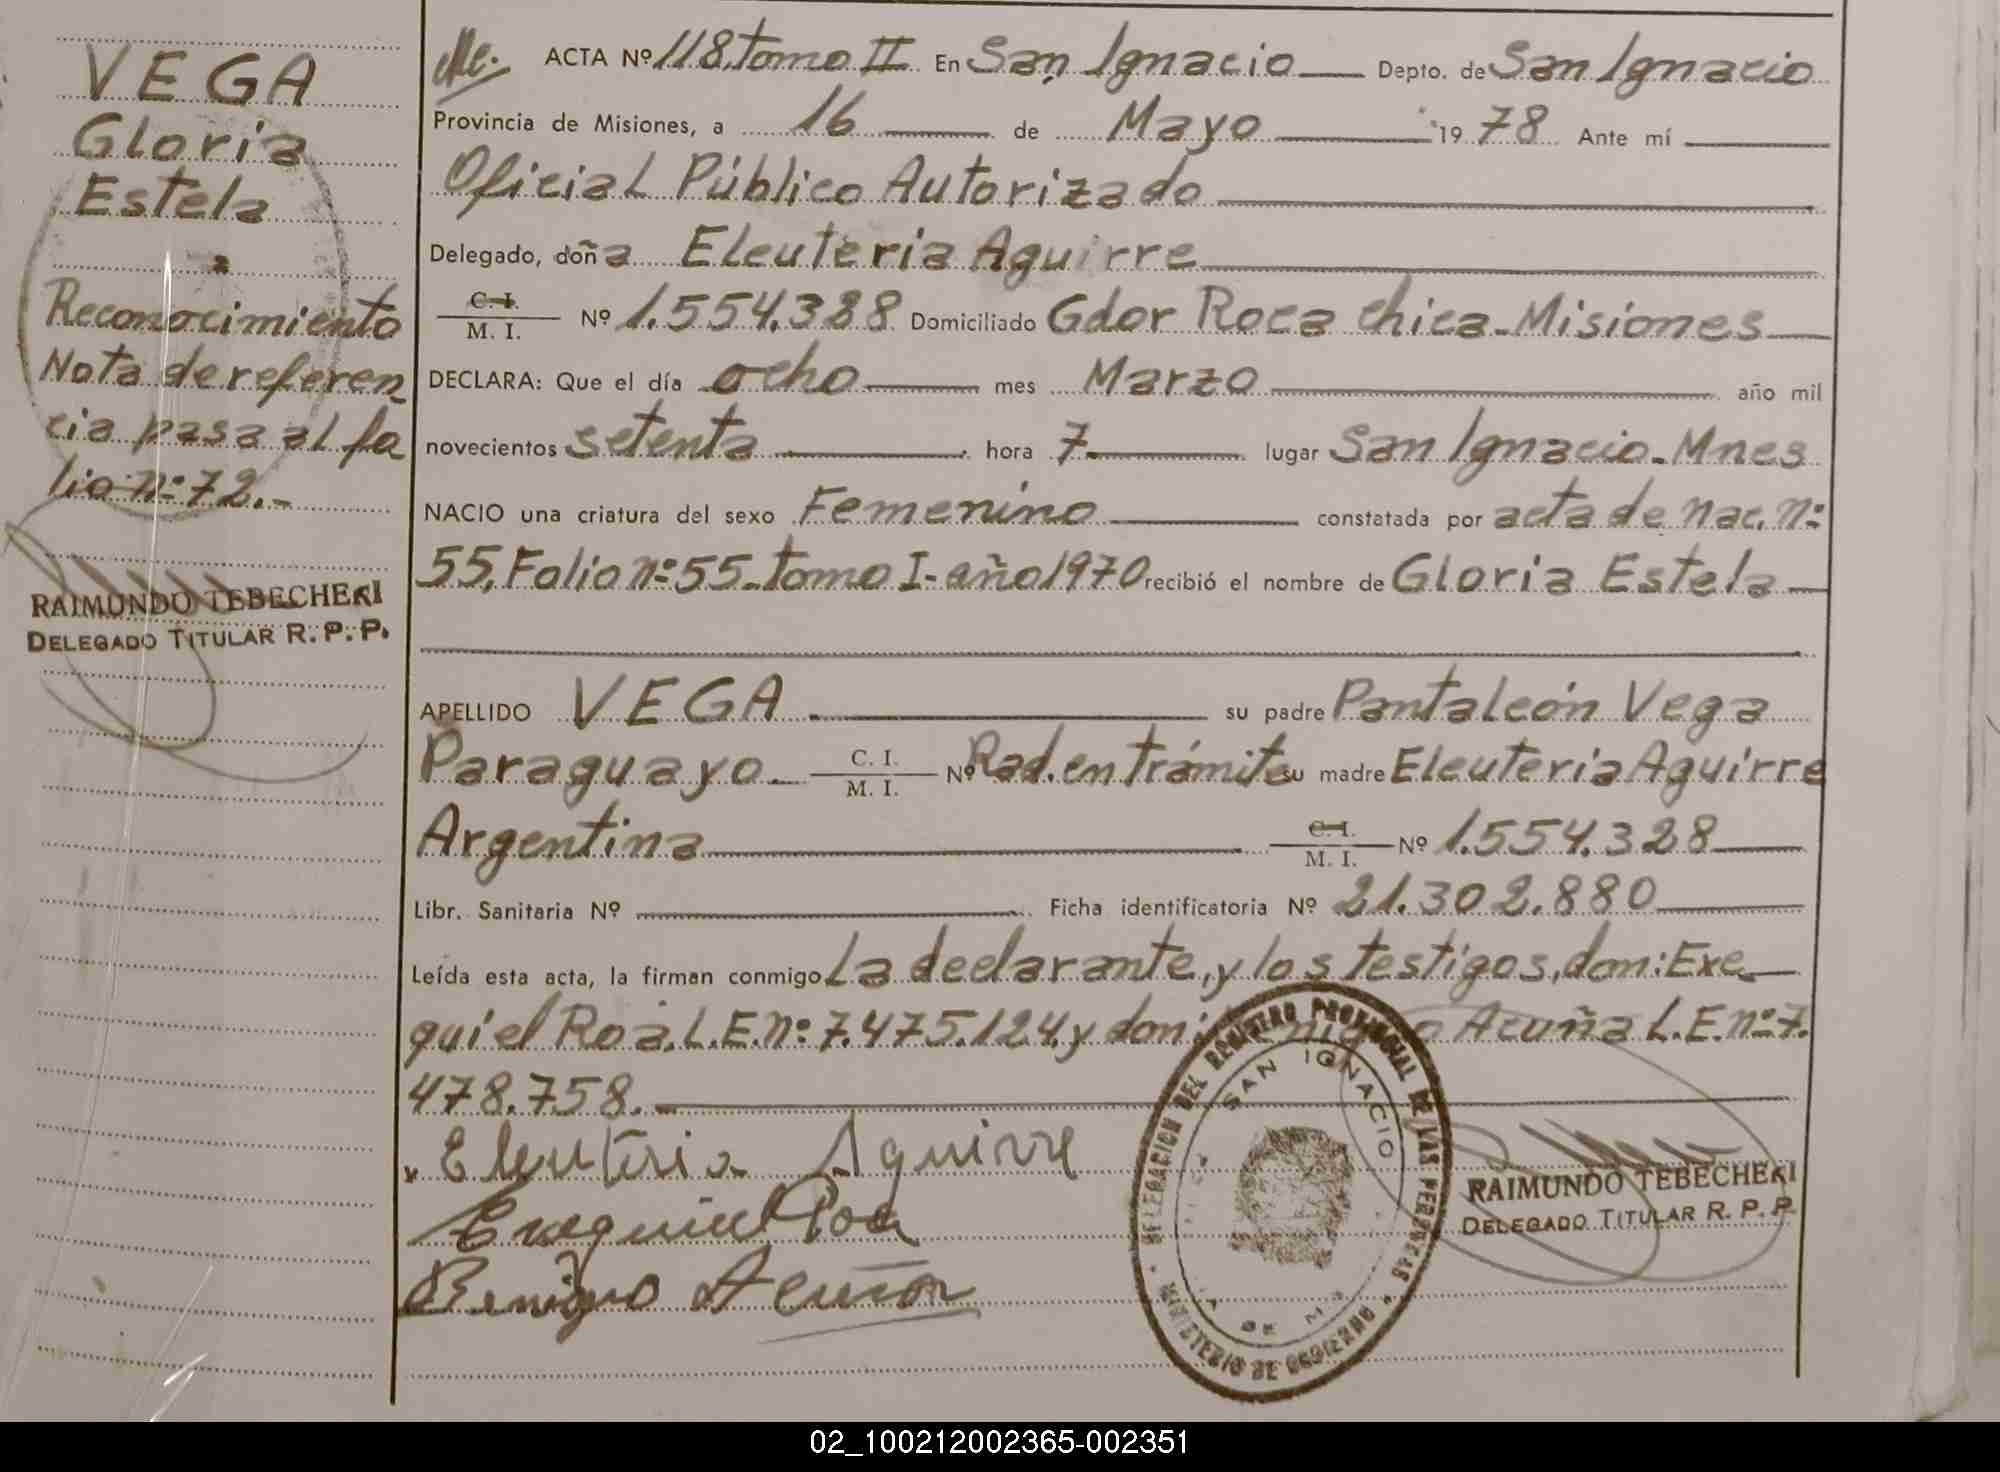 VEGA
Gloria
Estela
Reconocimiento
Nota de referen
cia pasa al fo
lio nº 72.-
RAIMUNDO TEBECHERI
DELEGADO TITULAR R. P. P.
ACTA Nº 118, tomo II En San Ignacio Depto. de San Ignacio
Provincia de Misiones, a 16 de Mayo 1978 Ante mí
Oficial Público Autorizado
Delegado, doña Eleuteria Aguirre
C. I.
M. I. Nº 1.554.328 Domiciliado Gdor Roca chica - Misiones
DECLARA: Que el día ocho mes Marzo año mil
novecientos setenta hora 7 lugar San Ignacio - Mnes
NACIO una criatura del sexo Femenino constatada por acta de nac. nº
55, Folio nº 55 - tomo I - año 1970 recibió el nombre de Gloria Estela
APELLIDO VEGA su padre Pantaleón Vega
Paraguayo C. I. M. I. Nº Rad. en trámite su madre Eleuteria Aguirre
Argentina C. I. M. I. Nº 1.554.328
Libr. Sanitaria Nº Ficha identificatoria Nº 21.302.880
Leída esta acta, la firman conmigo La declarante, y los testigos, don: Exe
quiel Roa, L.E. nº 7.475.124, y don: Acuña L.E. nº 7.
478.758.
Eleuteria Aguirre
Exequiel Roa
Benigno Acuña
DELEGACION DEL REGISTRO PROVINCIAL DE LAS PERSONAS
SAN IGNACIO
MINISTERIO DE GOBIERNO
RAIMUNDO TEBECHERI
DELEGADO TITULAR R. P. P.
02_100212002365-002351